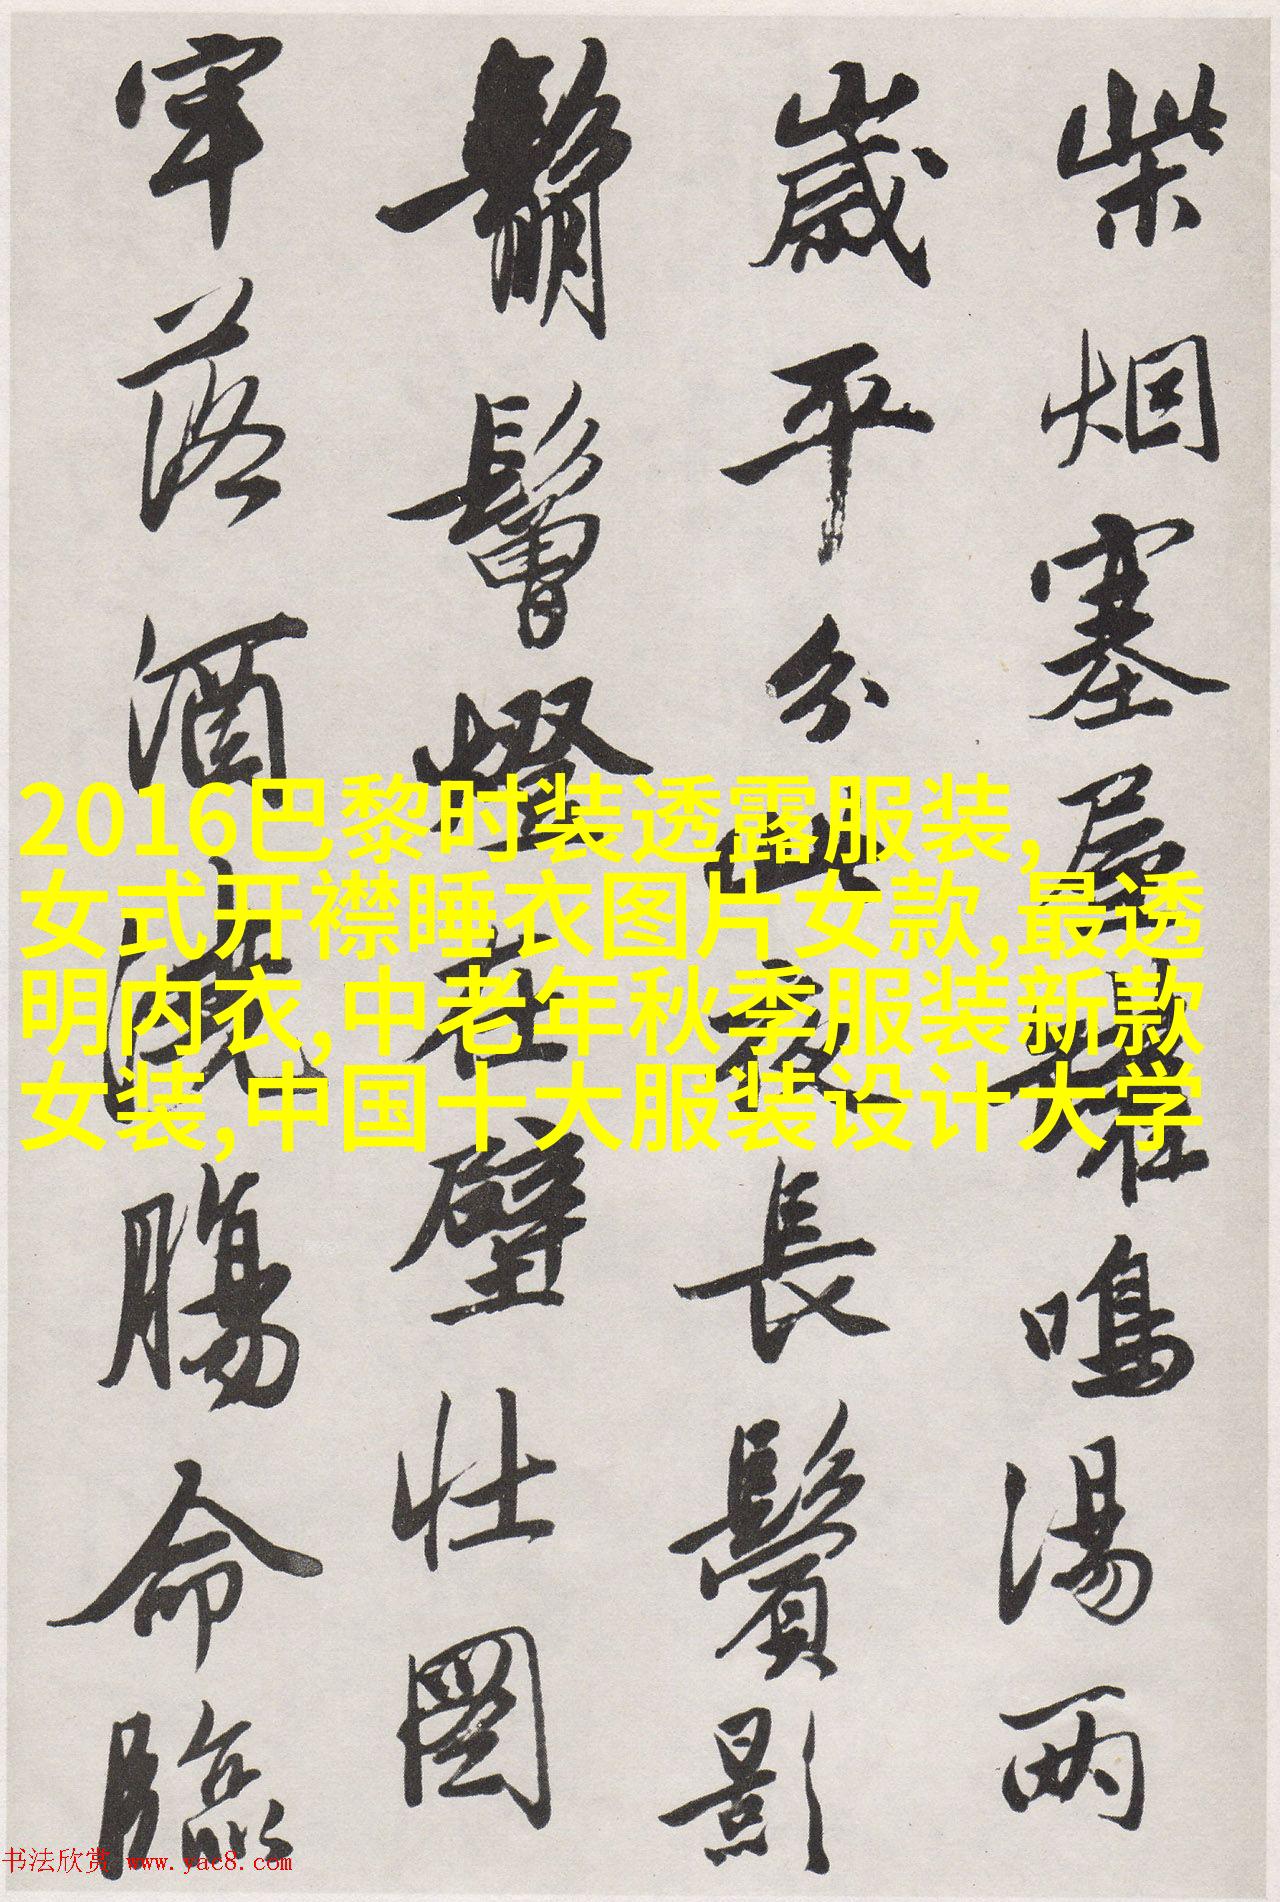 柴烟塞屋罐鳴湯兩
歲平分此夜長鬢影
鬅鬙燈在壁壯圖
牢落酒澆腸命臨
2016巴黎时装透露服装,
女式开襟睡衣图片女款,最透
明内衣,中老年秋季服装新款
女装,中国十大服装设计大学
书法欣赏 www.yac8.com